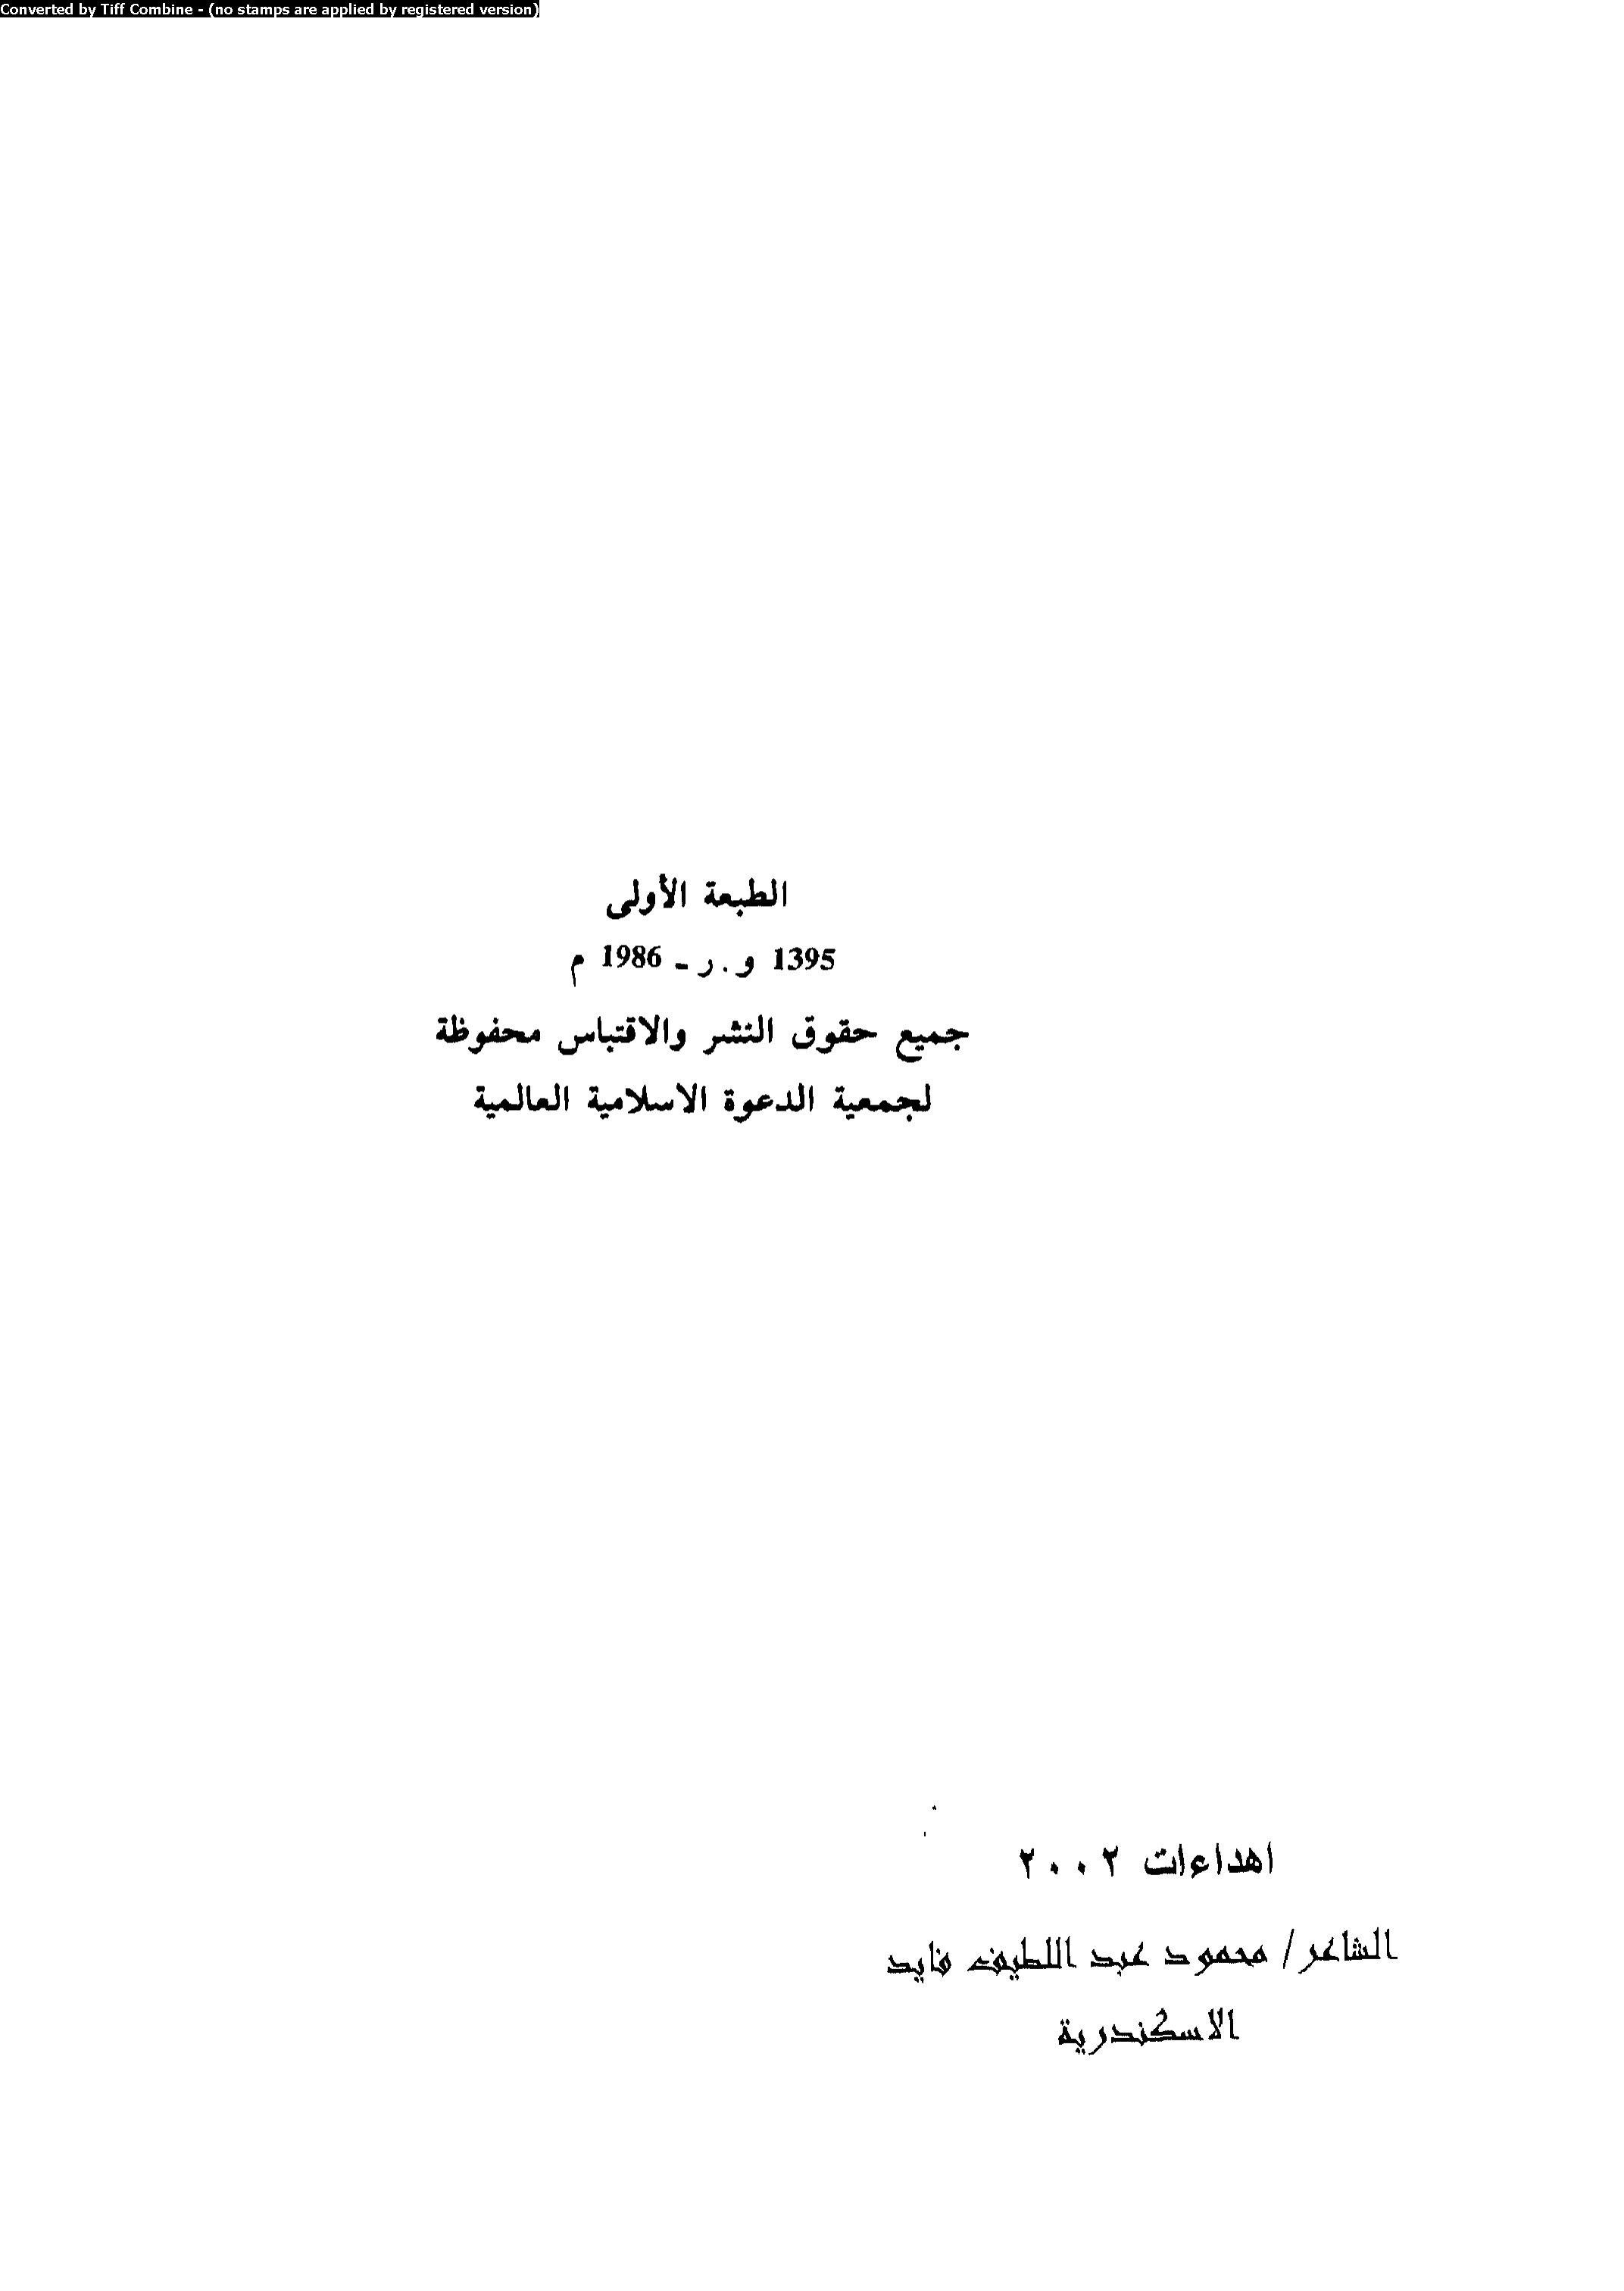 Converted by Tiff Combine - (no stamps are applied by registered version)
الطبعة الأولى
1395 و . ر ـ 1986 م
جميع حقوق النشر والاقتباس محفوظة
لجمعية الدعوة الاسلامية العالمية
اهداءات ٢٠٠٢
الشاعر/ محمود عبد اللطيف فايد
الاسكندرية